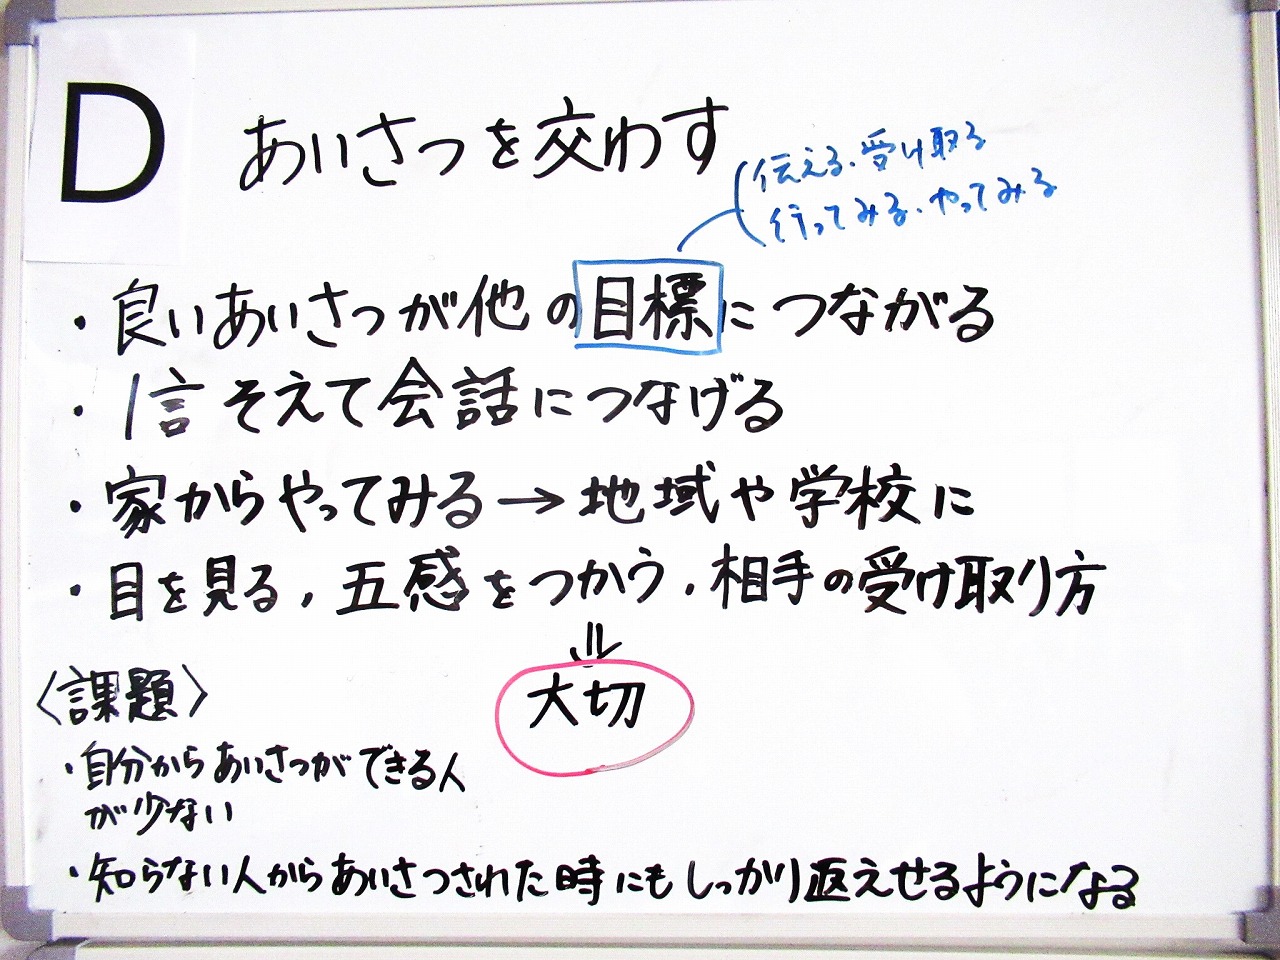 D
あいさつを交わす
伝える・受け取る
行ってみる・やってみる
・良いあいさつが他の目標につながる
・1言そえて会話につなげる
・家からやってみる→地域や学校に
・目を見る，五感をつかう，相手の受け取り方
⇓
大切
〈課題〉
・自分からあいさつができる人
が少ない
・知らない人からあいさつされた時にもしっかり返えせるようになる